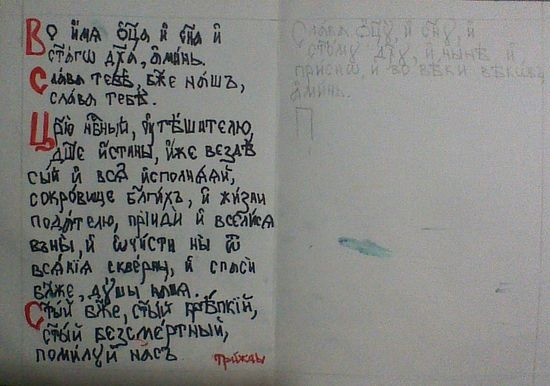 Во и҆́мѧ ѻ҆ц҃а и҆ сн҃а и҆
ст҃агѡ дх҃а, а҆ми́нь.
Сла́ва тебѣ̀, бж҃е на́шъ,
сла́ва тебѣ̀.
Цр҃ю̀ нбⷭ҇ный, ᲂу҆тѣ́шителю,
дш҃е и҆́стины, и҆́же вездѣ̀
сы́й и҆ всѧ̑ и҆сполнѧ́ѧй,
сокро́вище бл҃ги́хъ, и҆ жи́зни
пода́телю, прїидѝ и҆ всели́сѧ
въ ны̀, и҆ ѡ҆чи́сти ны̀ ѿ
всѧ́кїѧ скве́рны, и҆ спасѝ
бл҃же, дꙋ́шы на́шѧ.
Ст҃ы́й бж҃е, ст҃ы́й крѣ́пкїй,
ст҃ы́й безсме́ртный,
поми́лꙋй на́съ
три́жды
Сла́ва ѻ҆ц҃ꙋ̀, и҆ сн҃ꙋ, и҆
ст҃о́мꙋ дх҃ꙋ, и҆ ны́нѣ и҆
при́снѡ, и҆ во вѣ́ки вѣкѡ́въ,
а҆ми́нь.
П